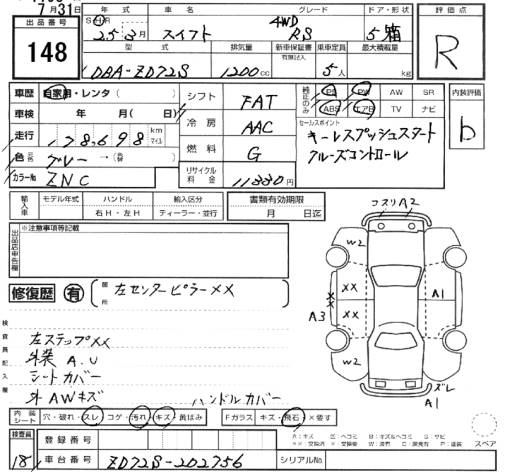 7月31日
出品番号
148
年式 車名 グレード ドア・形状
S H R
25 3月 スイフト 4WD RS 5 箱
型式 排気量 新車保証書 乗車定員 最大積載量
有無記入
DBA-ZD72S 1200cc 5人 kg
評価点
R
車歴 自家用・レンタ( )
車検 年 月( 日)
走行 178,698 km マイル
色 グレー →( )
カラーNo ZNC
シフト FAT
冷房 AAC
燃料 G
リサイクル料金 11330円
純正のみ PS PW AW SR
ABS エアB TV ナビ
セールスポイント
キーレスプッシュスタート
クルーズコントロール
内装評価
b
輸入車 モデル年式 ハンドル 輸入区分
右H・左H ディーラー・並行
書類有効期限
月 日迄
出品店申告欄
※注意事項等記載
修復歴 有 箇所 左センターピラーXX
検査員記入欄
左ステップXX
外装 A.U
シートカバー
外AWキズ ハンドルカバー
コスリA2
W2
XX XX A1
A3 XX
W2
ズレ
A1
内装シート 穴・破れ・スレ コゲ・汚れ・キズ・黄ばみ Fガラス キズ・飛石・X要す
スペア
検査員 18
登録番号
車台番号 ZD72S-202756
シリアルNo.